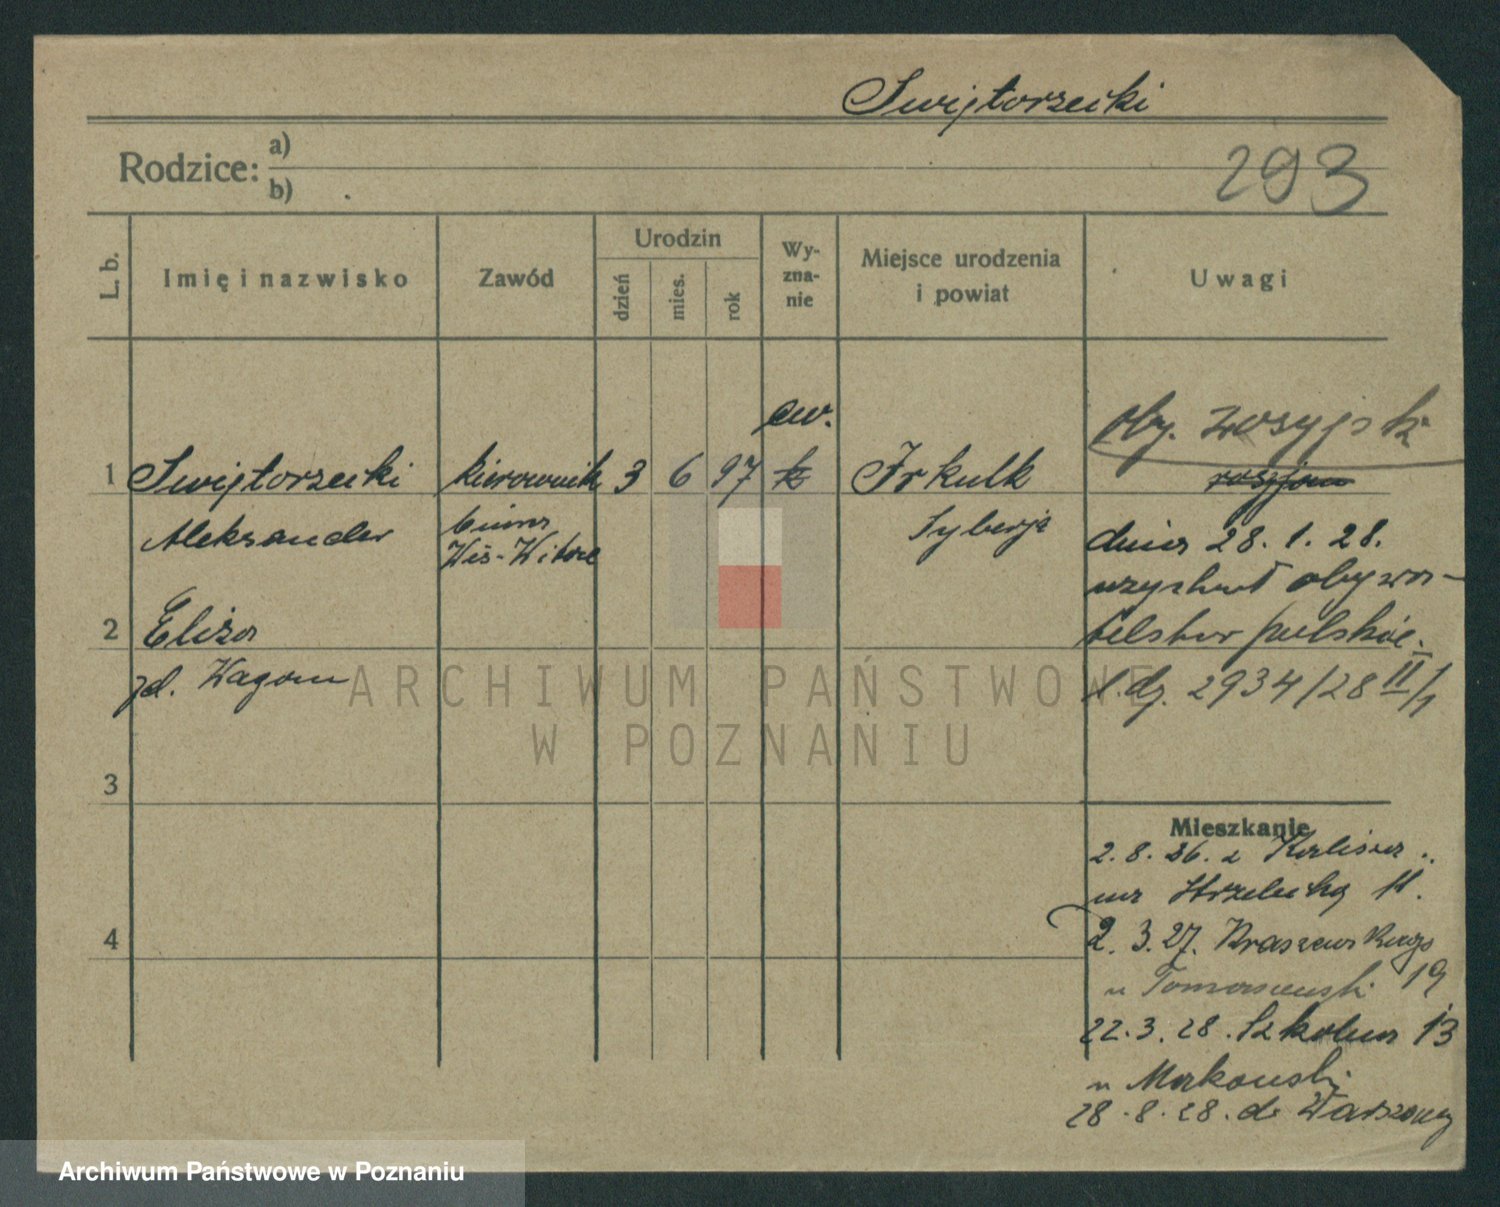 Świętorzecki
293
Rodzice: a)
b)
L. b.
Imię i nazwisko
Zawód
Urodzin
dzień
mies.
rok
Wy-
zna-
nie
Miejsce urodzenia
i powiat
Uwagi
1
Świętorzecki
Aleksander
kierownik
biura
3 6 97
ew.
k
Irkutk
Syberja
oby. rosyjsk
rosyjska
dnia 28. 1. 28.
uzyskał obywa-
telstwo polskie.
l. dz. 2934/28 II/1
2
Eliza
zd. Wagom
3
4
Mieszkanie
2. 8. 26. z Kalisza
na Strzelecką 11.
2. 3. 27. Kraszewskiego
u Tomaszewski 19
22. 3. 28. Szkolna 13
u Makowski
28. 8. 28. do Warszawy
ARCHIWUM PAŃSTWOWE
W POZNANIU
Archiwum Państwowe w Poznaniu